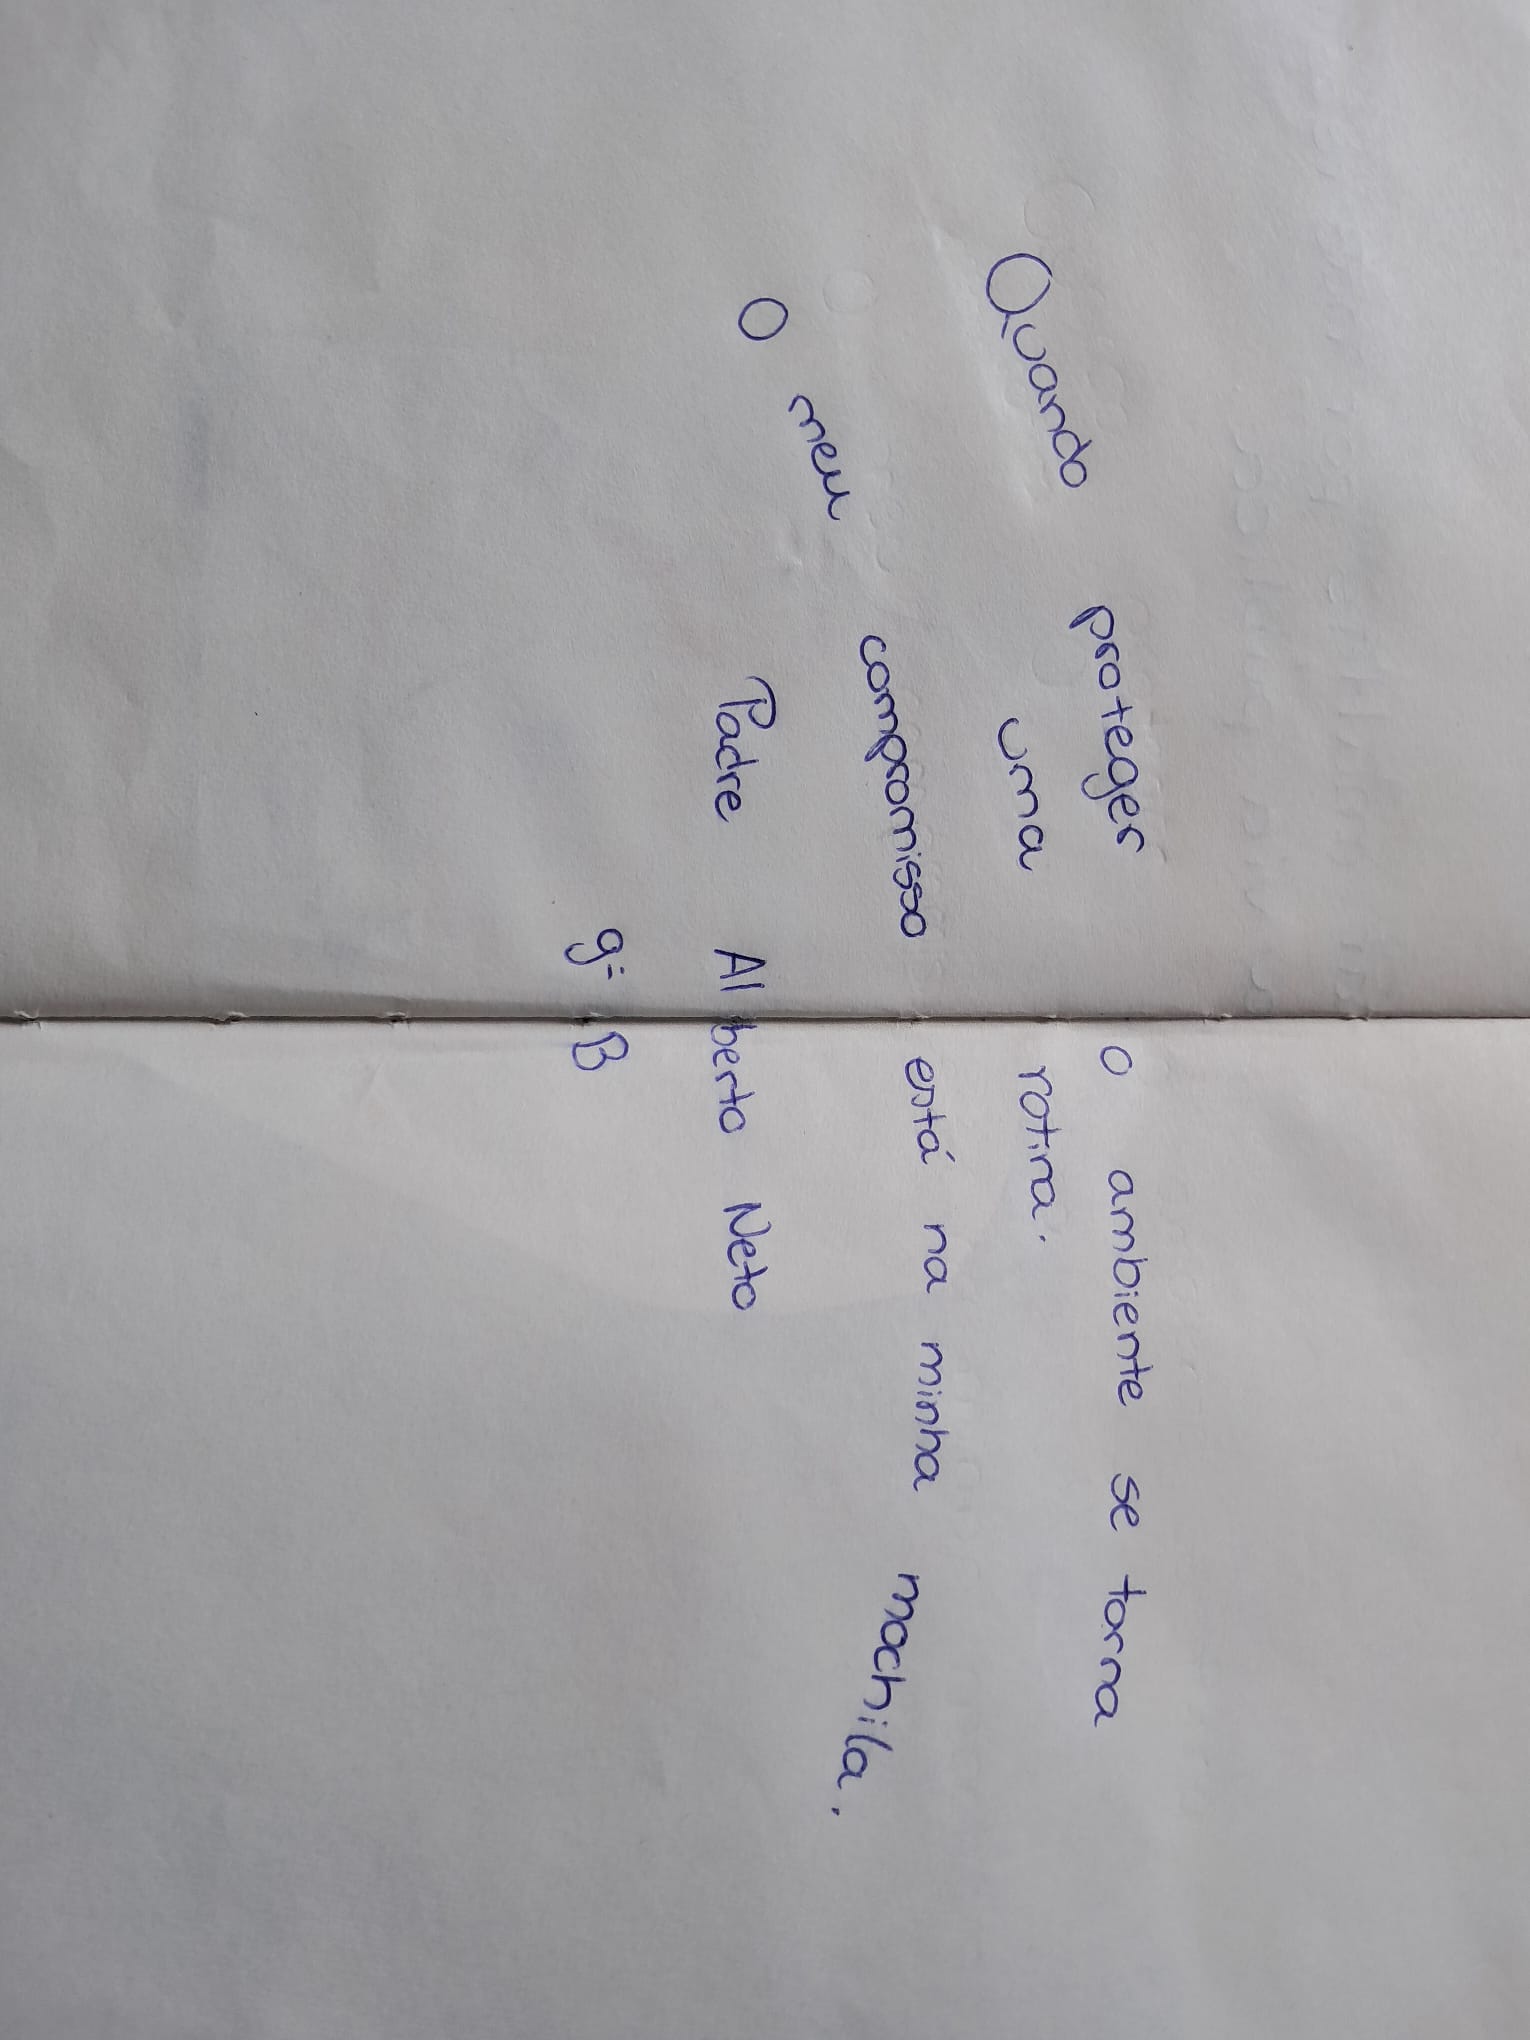 Quando proteger o ambiente se torna
uma rotina.
O meu compromisso está na minha mochila.
Padre Alberto Neto
9º B